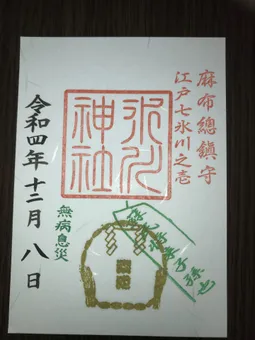 麻布總鎮守
江戸七氷川之壱
氷川
神社
蘇民将来子孫也
無病息災
令和四年十二月八日